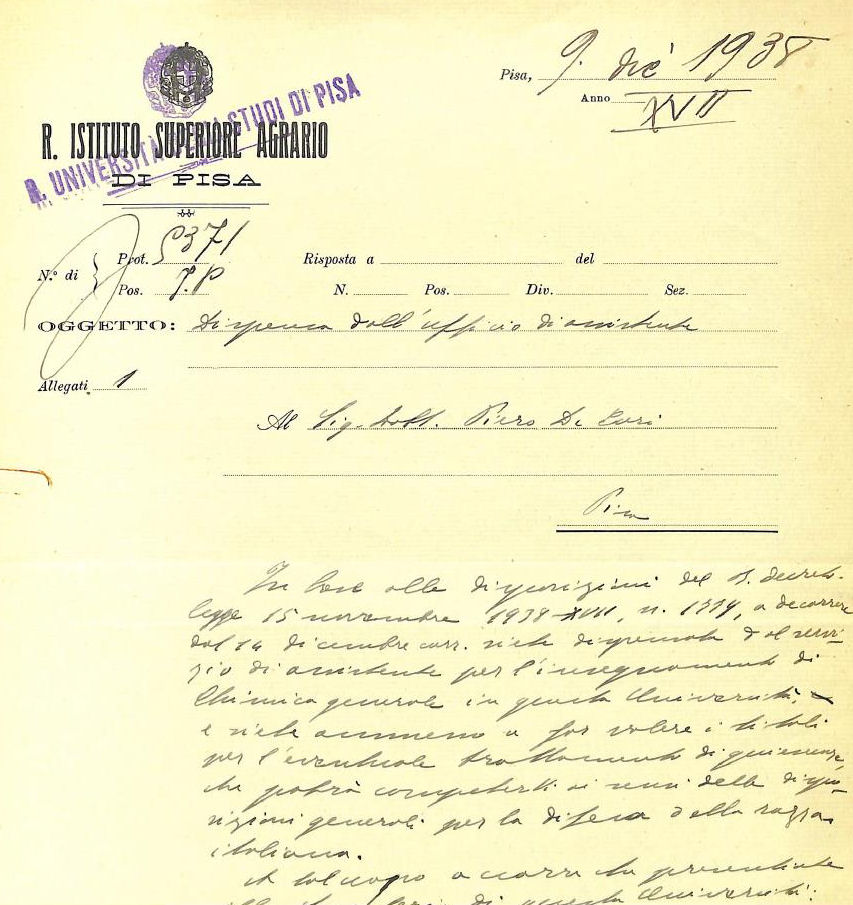 Pisa, 9. dic 1938
Anno XVII
R. UNIVERSITÀ STUDI DI PISA
R. ISTITUTO SUPERIORE AGRARIO
DI PISA
N.º di
Prot. 5371
Pos. 7.P
Risposta a del
N. Pos. Div. Sez.
OGGETTO: Dispensa dall'ufficio di assistente
Allegati 1
Al Sig. Dott. Piero De Cori
Pisa
In base alle disposizioni del R. decreto-
legge 15 novembre 1938-XVII, n. 1779, a decorrere
dal 14 dicembre corr. siete dispensato dal servi-
zio di assistente per l'insegnamento di
Chimica generale in questa Università,
e siete ammesso a far valere i titoli
per l'eventuale trattamento di quiescenza,
che potrà competervi ai sensi delle dispo-
sizioni generali per la difesa della razza
italiana.
A tal uopo occorre che presentiate
di questa Università: